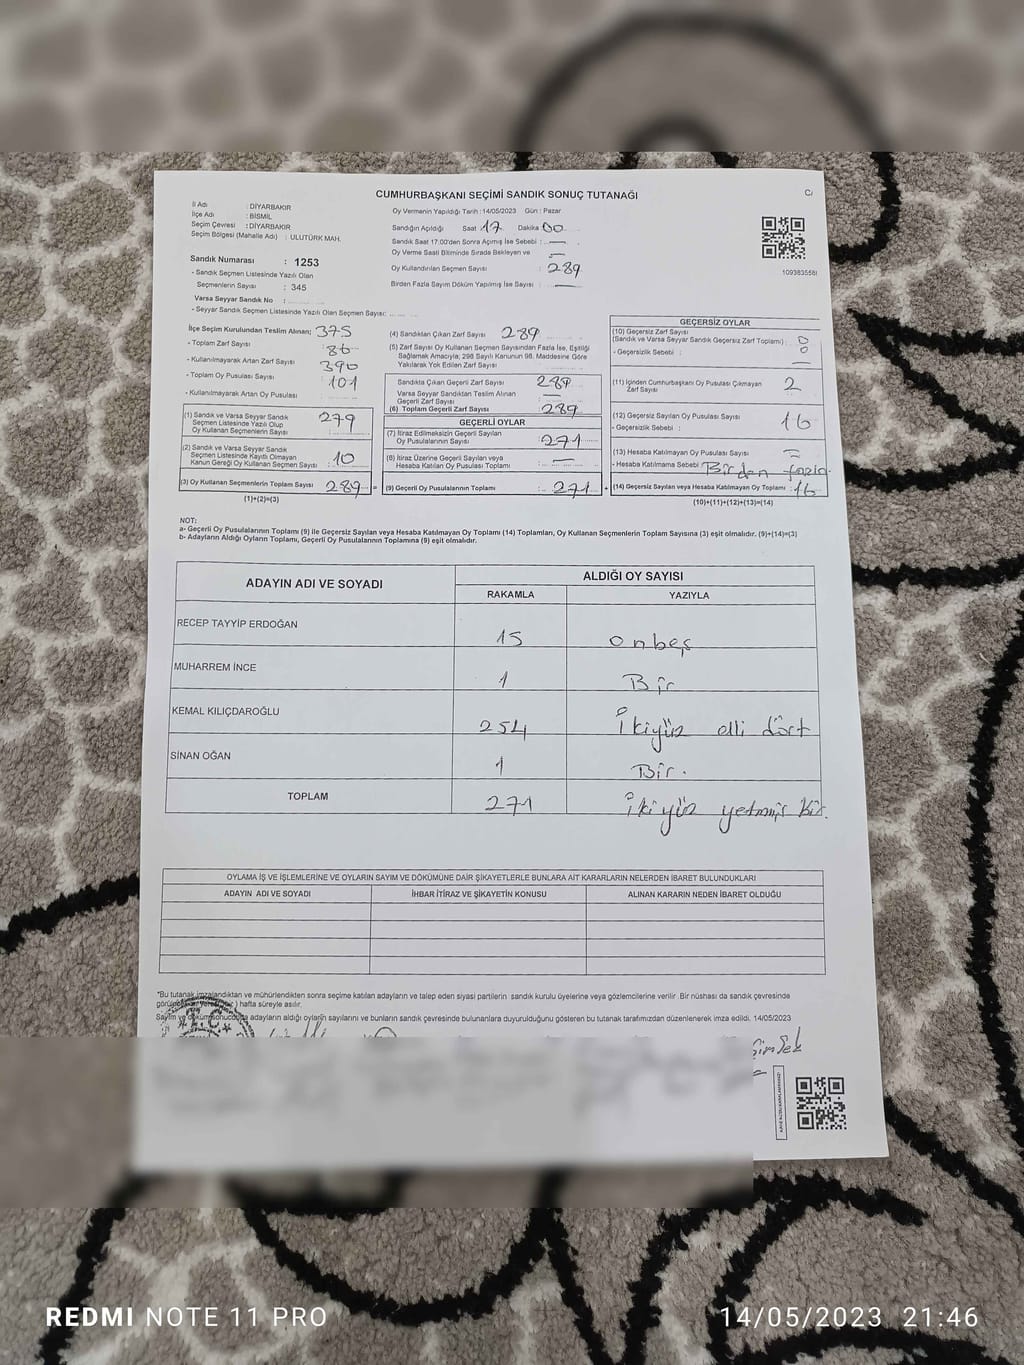 CUMHURBAŞKANI SEÇİMİ SANDIK SONUÇ TUTANAĞI
C/
İl Adı : DİYARBAKIR
İlçe Adı : BİSMİL
Seçim Çevresi : DİYARBAKIR
Seçim Bölgesi (Mahalle Adı) : ULUTÜRK MAH.
Sandık Numarası : 1253
- Sandık Seçmen Listesinde Yazılı Olan
Seçmenlerin Sayısı : 345
Varsa Seyyar Sandık No :
- Seyyar Sandık Seçmen Listesinde Yazılı Olan Seçmen Sayısı:
Oy Vermenin Yapıldığı Tarih :14/05/2023 Gün : Pazar
Sandığın Açıldığı Saat 17 Dakika 00
Sandık Saat 17:00'den Sonra Açılmış İse Sebebi : —
Oy Verme Saati Bitiminde Sırada Bekleyen ve —
Oy Kullandırılan Seçmen Sayısı : 289
Birden Fazla Sayım Döküm Yapılmış İse Sayısı : —
109383558
İlçe Seçim Kurulundan Teslim Alınan; 375
- Toplam Zarf Sayısı 86
- Kullanılmayarak Artan Zarf Sayısı 390
- Toplam Oy Pusulası Sayısı 101
- Kullanılmayarak Artan Oy Pusulası :
(1) Sandık ve Varsa Seyyar Sandık
Seçmen Listesinde Yazılı Olup
Oy Kullanan Seçmenlerin Sayısı 279
(2) Sandık ve Varsa Seyyar Sandık
Seçmen Listesinde Kayıtlı Olmayan
Kanun Gereği Oy Kullanan Seçmen Sayısı 10
(3) Oy Kullanan Seçmenlerin Toplam Sayısı 289 =
(1)+(2)=(3)
(4) Sandıktan Çıkan Zarf Sayısı 289
(5) Zarf Sayısı Oy Kullanan Seçmen Sayısından Fazla İse, Eşitliği
Sağlamak Amacıyla, 298 Sayılı Kanunun 98. Maddesine Göre
Yakılarak Yok Edilen Zarf Sayısı
Sandıkta Çıkan Geçerli Zarf Sayısı 289
Varsa Seyyar Sandıktan Teslim Alınan
Geçerli Zarf Sayısı —
(6) Toplam Geçerli Zarf Sayısı : 289
GEÇERLİ OYLAR
(7) İtiraz Edilmeksizin Geçerli Sayılan
Oy Pusulalarının Sayısı : 271
(8) İtiraz Üzerine Geçerli Sayılan veya
Hesaba Katılan Oy Pusulası Toplamı : —
(9) Geçerli Oy Pusulalarının Toplamı : 271 +
GEÇERSİZ OYLAR
(10) Geçersiz Zarf Sayısı
(Sandık ve Varsa Seyyar Sandık Geçersiz Zarf Toplamı) : 0
- Geçersizlik Sebebi :
(11) İçinden Cumhurbaşkanı Oy Pusulası Çıkmayan
Zarf Sayısı 2
(12) Geçersiz Sayılan Oy Pusulası Sayısı 16
- Geçersizlik Sebebi :
(13) Hesaba Katılmayan Oy Pusulası Sayısı :
- Hesaba Katılmama Sebebi : Birden fazla
(14) Geçersiz Sayılan veya Hesaba Katılmayan Oy Toplamı : 16
(10)+(11)+(12)+(13)=(14)
NOT:
a- Geçerli Oy Pusulalarının Toplamı (9) ile Geçersiz Sayılan veya Hesaba Katılmayan Oy Toplamı (14) Toplamları, Oy Kullanan Seçmenlerin Toplam Sayısına (3) eşit olmalıdır. (9)+(14)=(3)
b- Adayların Aldığı Oyların Toplamı, Geçerli Oy Pusulalarının Toplamına (9) eşit olmalıdır.
ADAYIN ADI VE SOYADI
ALDIĞI OY SAYISI
RAKAMLA YAZIYLA
RECEP TAYYİP ERDOĞAN 15 onbeş
MUHARREM İNCE 1 Bir
KEMAL KILIÇDAROĞLU 254 ikiyüz elli dört
SİNAN OĞAN 1 Bir.
TOPLAM 271 ikiyüz yetmiş bir.
OYLAMA İŞ VE İŞLEMLERİNE VE OYLARIN SAYIM VE DÖKÜMÜNE DAİR ŞİKAYETLERLE BUNLARA AİT KARARLARIN NELERDEN İBARET BULUNDUKLARI
ADAYIN ADI VE SOYADI İHBAR İTİRAZ VE ŞİKAYETİN KONUSU ALINAN KARARIN NEDEN İBARET OLDUĞU
*Bu tutanak imzalandıktan ve mühürlendikten sonra seçime katılan adayların ve talep eden siyasi partilerin sandık kurulu üyelerine veya gözlemcilerine verilir. Bir nüshası da sandık çevresinde
hafta süreyle asılır.
Sayım ve döküm sonucunda adayların aldığı oyların sayılarını ve bunların sandık çevresinde bulunanlara duyurulduğunu gösteren bu tutanak tarafımızdan düzenlenerek imza edildi. 14/05/2023
T.C.
REDMI NOTE 11 PRO
14/05/2023 21:46